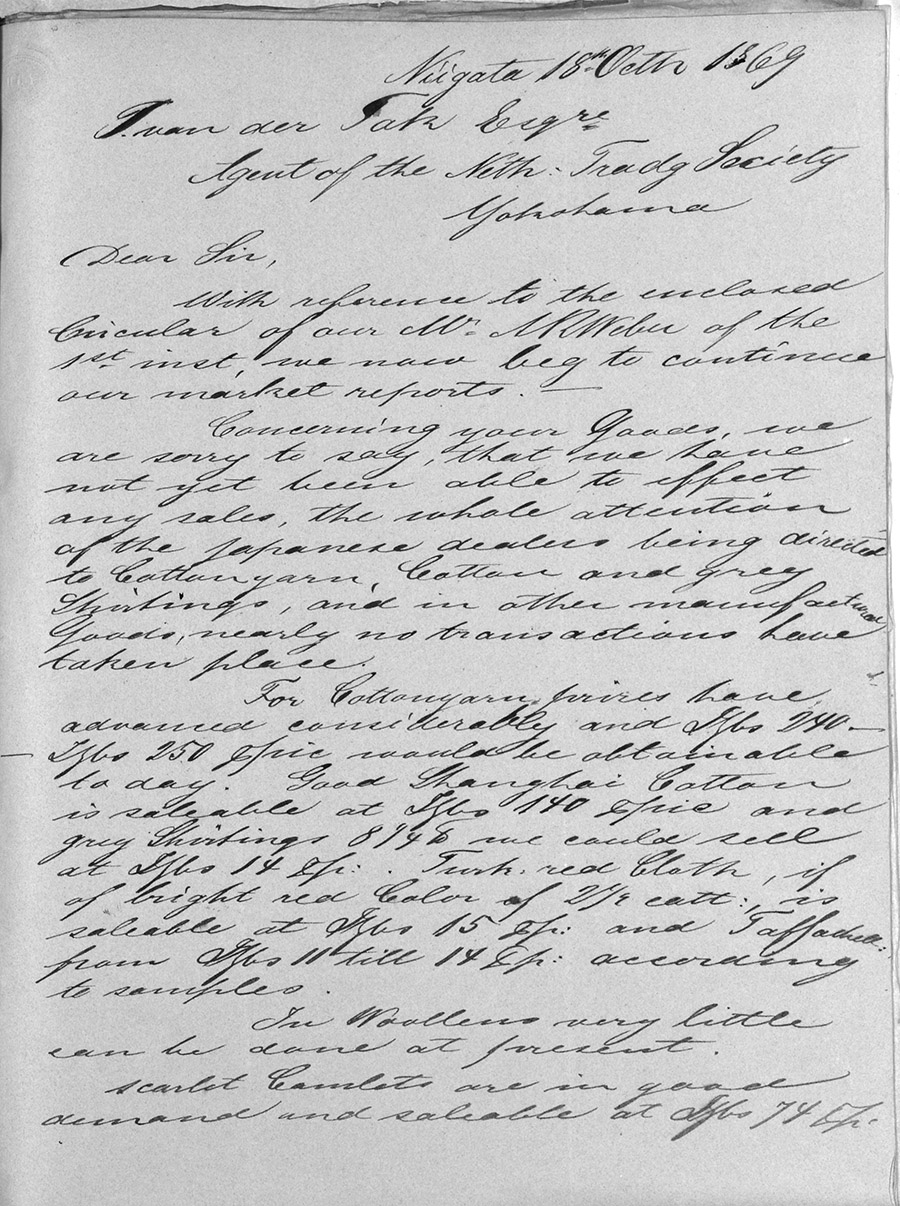 Niigata 18th Octbr 1869
T. van der Tak Esqre
Agent of the Neth: Tradg Society
Yokohama
Dear Sir,
With reference to the enclosed
Circular of our Mr. A R Weber of the
1st inst, we now beg to continue
our market reports. —
Concerning your Goods, we
are sorry to say, that we have
not yet been able to effect
any sales, the whole attention
of the Japanese dealers being directed
to Cottonyarn, Cotton and grey
Shirtings, and in other manufactured
Goods, nearly no transactions have
taken place.
For Cottonyarn, prizes have
advanced considerably and Izbs 240 —
Izbs 250 pr pic would be obtainable
to day. Good Shanghai Cotton
is saleable at Izbs 140 pr pic and
grey Shirtings 8 1/4 lb we could sell
at Izbs 14 pr p: . Turk: red Cloth, if
of bright red Color of 2 1/2 catt:, is
saleable at Izbs 15 pr p: and Taffachell:
from Izbs 11 till 14 pr p: according
to samples.
In Woollens very little
can be done at present.
Scarlet Camlets are in good
demand and saleable at Izbs 74 pr p: